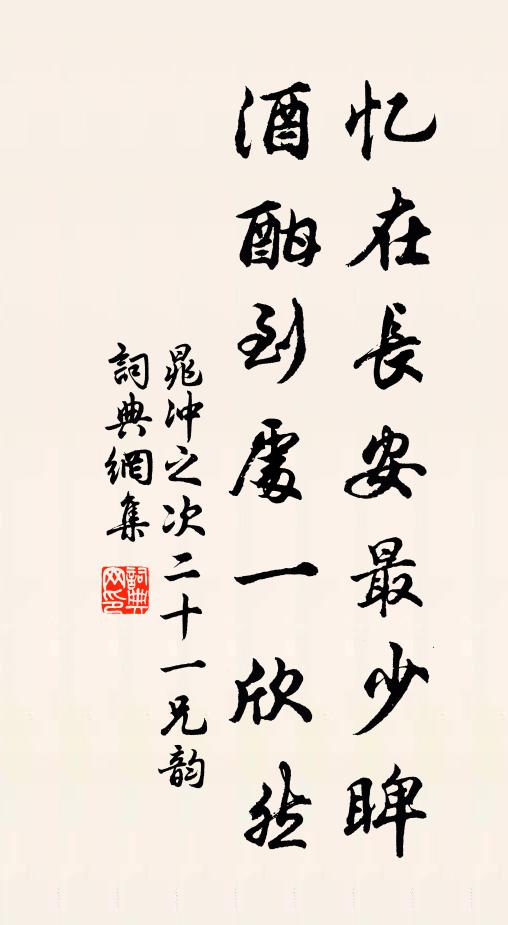 忆在長安最少睥
酒酣到處一欣然
晁冲之次二十一兄韵
詞典網集
詞典网印